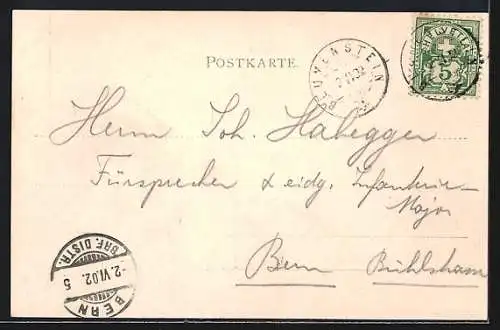 POSTKARTE.
HELVETIA
5
Herrn Joh. Habegger
Fürsprecher & eidg. Infanterie-
Major
Bern
BRF. DISTR.
-2.VI.02. 5
BERN